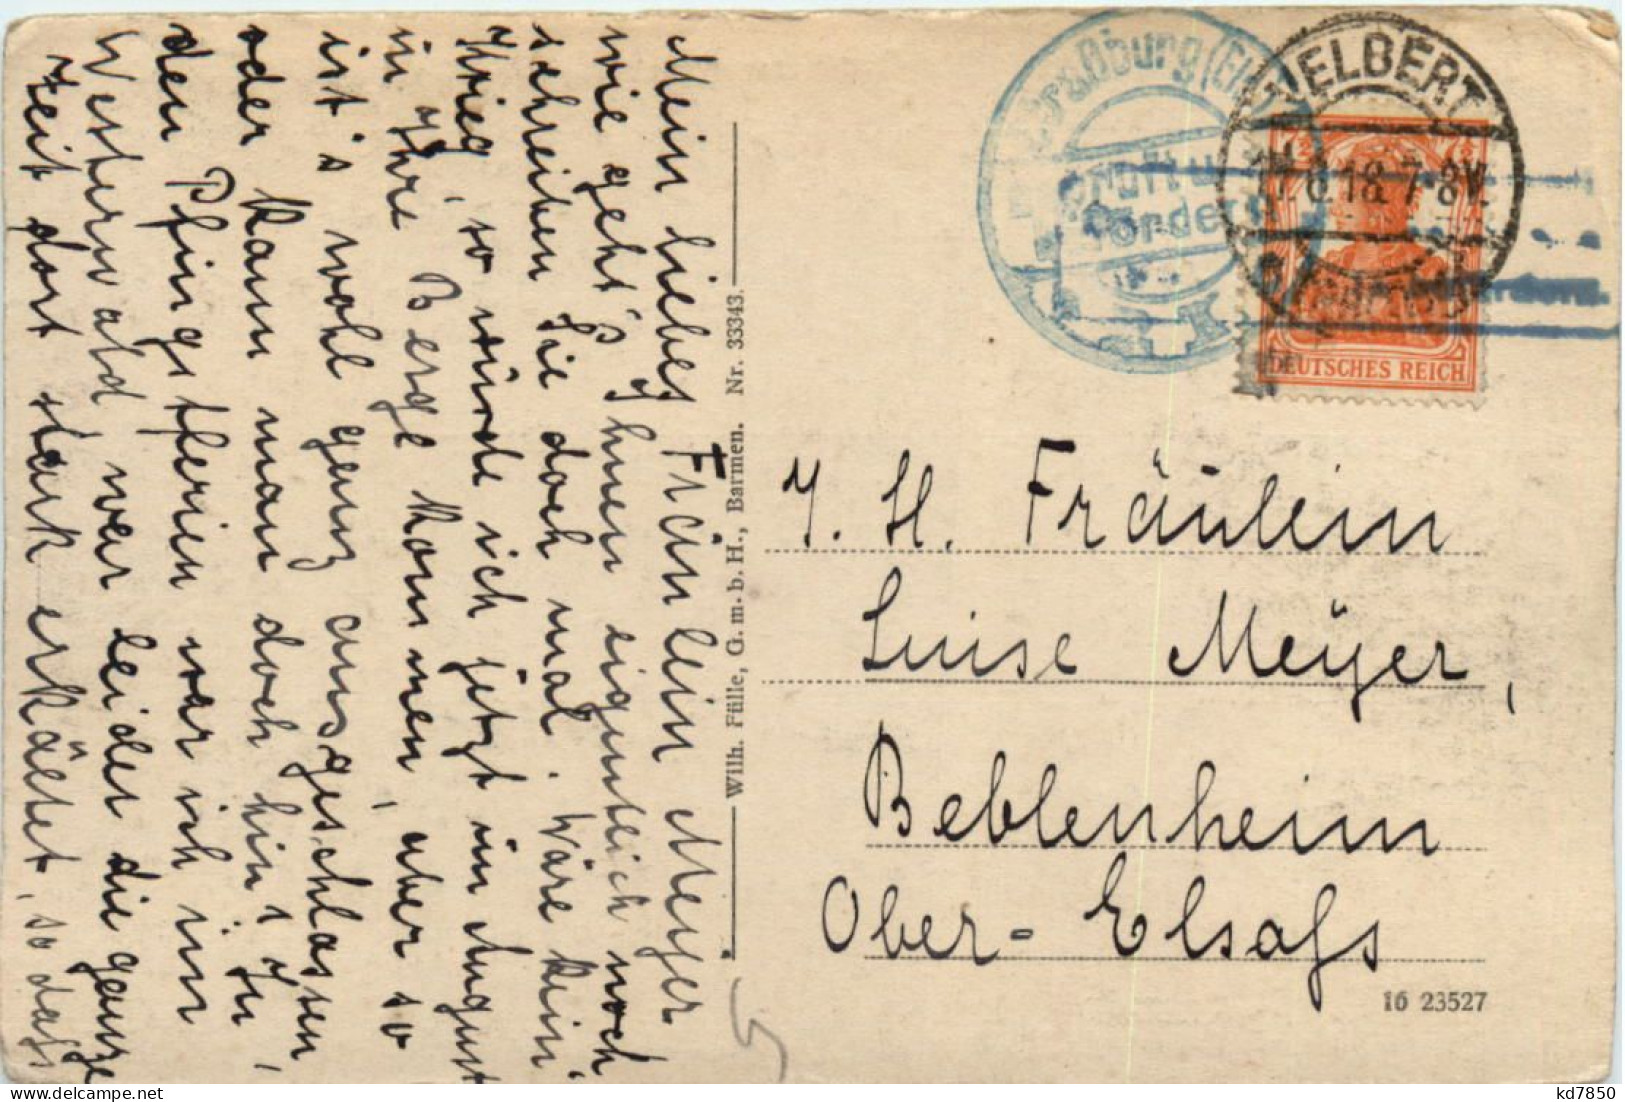 Mein liebes Fräulein Meyer
wie geht's Ihnen eigentlich noch
schreiben Sie doch mal. Wäre kein
Krieg, so würde ich jetzt im August
in Ihre Berge kommen, aber so
ist's wohl ganz ausgeschlossen,
oder kann man doch hin? In
den Pfingstferien war ich im
Westerwald, war leider die ganze
Zeit dort stark erkältet, so daß
Wilh. Fülle, G. m. b. H., Barmen. Nr. 33343.
Straßburg (Els.)
Geprüft u.
zu
VELBERT
17.8.18. 7-8V.
DEUTSCHES REICH
J. H. Fräulein
Luise Meyer,
Beblenheim
Ober-Elsaß
16 23527
kd7850